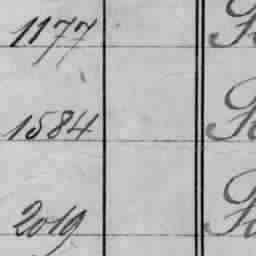 1177
1584
2019